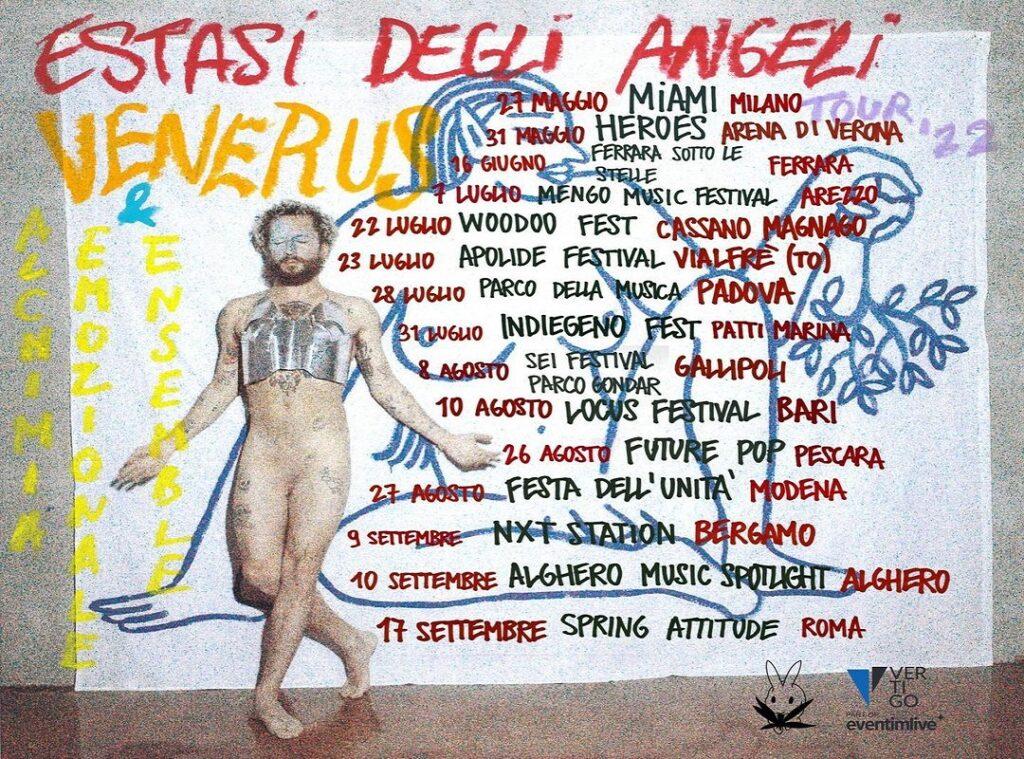 ESTASI DEGLI ANGELI
VENERUS
TOUR '22
&
ALCHIMIA
EMOZIONALE
ENSEMBLE
27 MAGGIO MIAMI MILANO
31 MAGGIO HEROES ARENA DI VERONA
16 GIUGNO FERRARA SOTTO LE STELLE FERRARA
7 LUGLIO MENGO MUSIC FESTIVAL AREZZO
22 LUGLIO WOODOO FEST CASSANO MAGNAGO
23 LUGLIO APOLIDE FESTIVAL VIALFRÈ (TO)
28 LUGLIO PARCO DELLA MUSICA PADOVA
31 LUGLIO INDIEGENO FEST PATTI MARINA
8 AGOSTO SEI FESTIVAL PARCO GONDAR GALLIPOLI
10 AGOSTO LOCUS FESTIVAL BARI
26 AGOSTO FUTURE POP PESCARA
27 AGOSTO FESTA DELL'UNITA' MODENA
9 SETTEMBRE NXT STATION BERGAMO
10 SETTEMBRE ALGHERO MUSIC SPOTLIGHT ALGHERO
17 SETTEMBRE SPRING ATTITUDE ROMA
VER
TI
GO
PART OF
eventimlive+